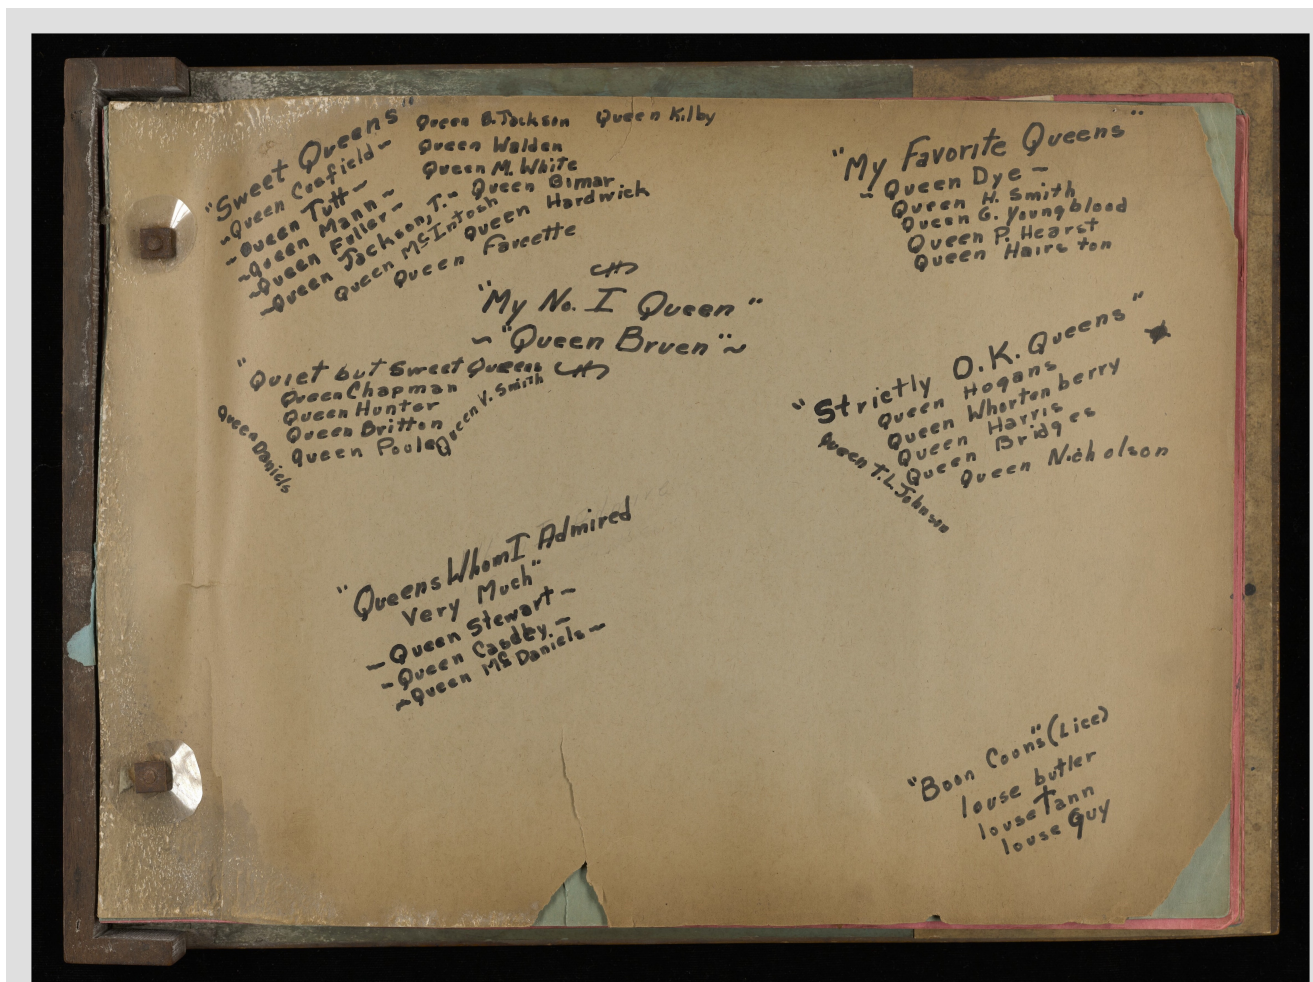 "Sweet Queens"
~Queen Coefield~
~Queen Tutt~
~Queen Mann~
~Queen Fuller~
~Queen Jackson, T.~
Queen McIntosh
Queen B. Jackson
Queen Kilby
Queen Walden
Queen M. White
Queen Gimar
Queen Hardwick
Queen Favette
"My Favorite Queens"
~Queen Dye~
Queen H. Smith
Queen G. Youngblood
Queen P. Hearst
Queen Hairston
"My No. I Queen"
~"Queen Bruen"~
"Quiet but Sweet Queens
Queen Chapman
Queen Hunter
Queen Britton
Queen Poole
Queen Daniels
Queen V. Smith
"Strictly O.K. Queens"
Queen Hogans
Queen Whortenberry
Queen Harris
Queen Bridges
Queen Nicholson
Queen T.L. Johnson
"Queens Whom I Admired
Very Much"
~Queen Stewart~
~Queen
~Queen McDaniels~
"Boon Coons" (Lice)
louse butler
louse Tann
louse Guy